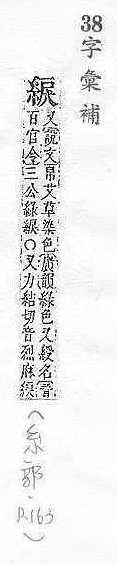 38字彙補
綟 又說文帛艾草染色廣韻綠色又綬名晉
百官令三公綠綟○又力結切音烈麻綟
(糸部.
P.163)